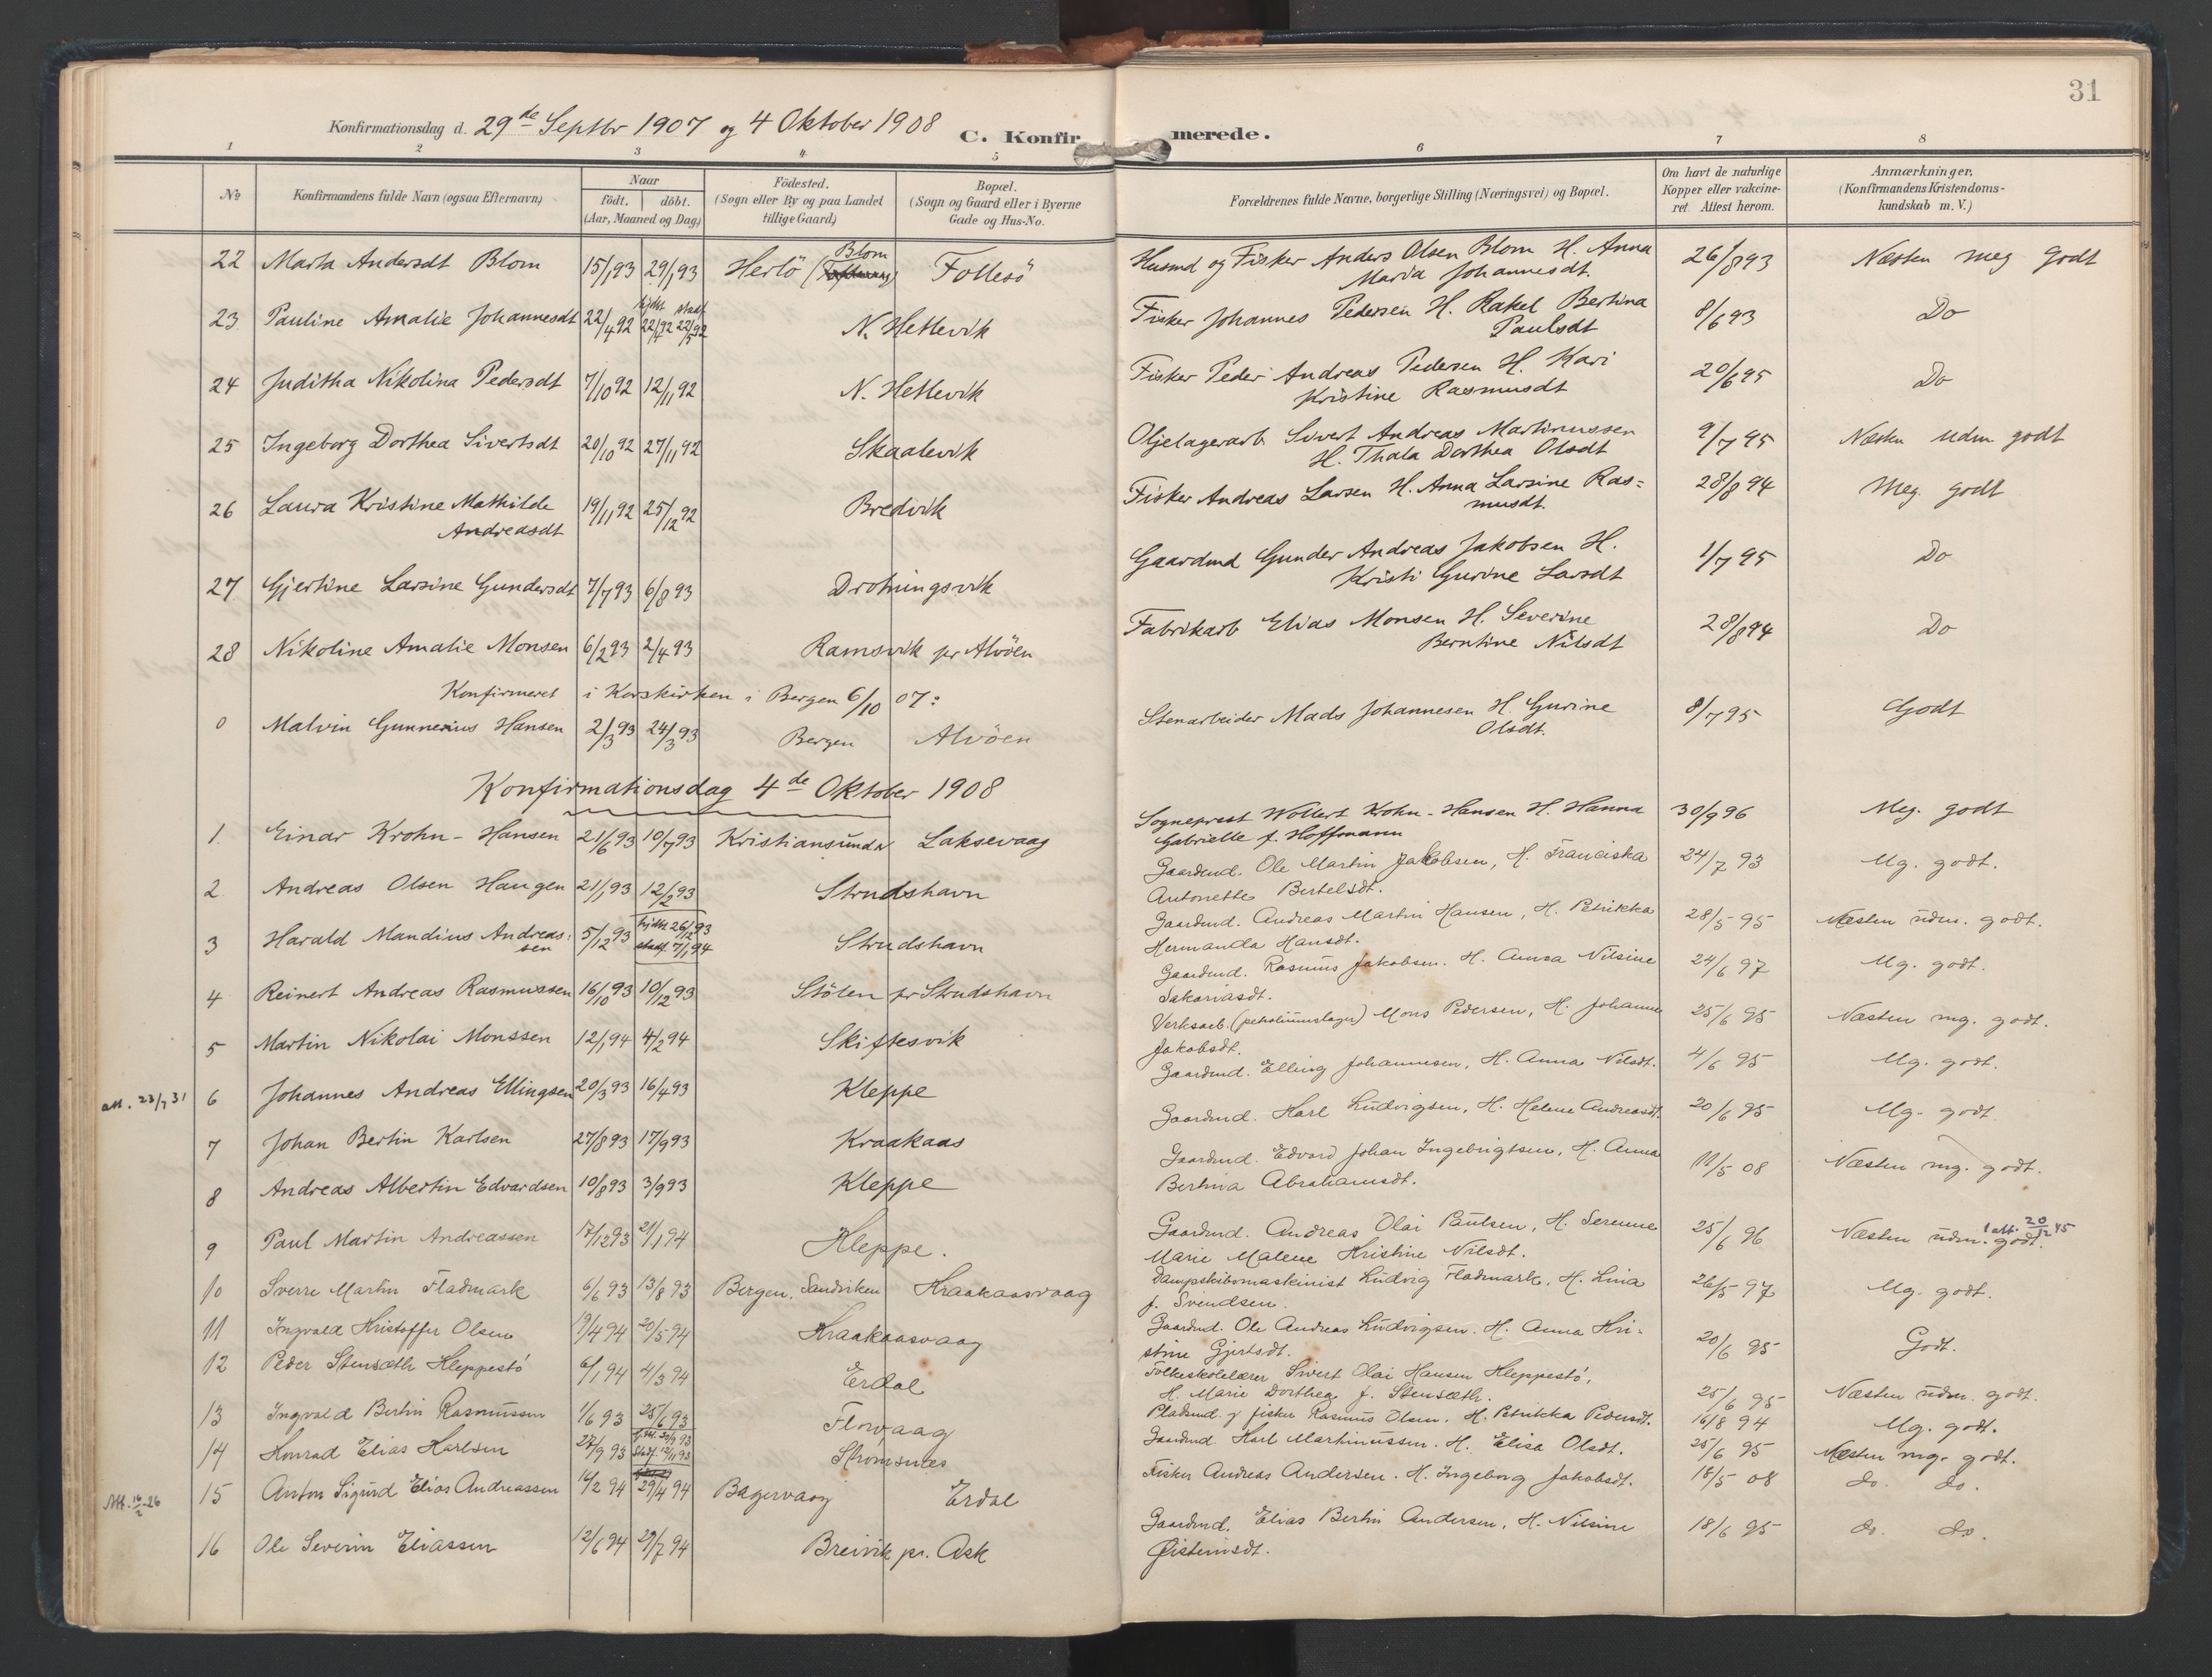 31
Konfirmationsdag d. 29de Septbr 1907 og 4 Oktober 1908
C. Konfirmerede.
1 2 3 4 5 6 7 8
No
Konfirmandens fulde Navn (ogsaa Efternavn)
Naar
födt. döbt.
(Aar, Maaned og Dag)
Födested.
(Sogn eller By og paa Landet
tillige Gaard)
Bopæl.
(Sogn og Gaard eller i Byerne
Gade og Hus-No.
Forældrenes fulde Navne, borgerlige Stilling (Næringsvei) og Bopæl.
Om havt de naturlige
Kopper eller vakcine-
ret. Attest herom.
Anmærkninger,
(Konfirmandens Kristendoms-
kundskab m. V.)
22 Marta Andersdt Blom 15/1 93 29/1 93 Herlö (Blom Follesö Husmd og Fisker Anders Olsen Blom H. Anna
Maria Johannesdt. 26/8 93 Næsten meg godt
23 Pauline Amalie Johannesdt 22/4 92 hjdt 22/4 92 stadf 22/5 92 N. Hettevik Fisker Johannes Pedersen H. Rakel Bertina
Paulsdt 8/6 93 Do
24 Juditha Nikolina Pedersdt 7/10 92 12/11 92 N. Hettevik Fisker Peder Andreas Pedersen H. Kari
Kristine Rasmusdt 20/6 95 Do
25 Ingeborg Dorthea Sivertsdt 20/10 92 27/11 92 Skaalevik Oljelagerarb. Sivert Andreas Martinussen
H. Thala Dorthea Olsdt 9/7 95 Næsten udm godt
26 Laura Kristine Mathilde
Andreasdt 19/11 92 25/12 92 Bredvik Fisker Andreas Larsen H. Anna Larsine Ras=
musdt. 28/8 94 Meg. godt
27 Gjertine Larsine Gundersdt 7/7 93 6/8 93 Drotningsvik Gaardmd Gunder Andreas Jakobsen H.
Kristi Gurine Larsdt 1/7 95 Do
28 Nikoline Amalie Monsen 6/2 93 2/4 93 Ramsvik pr Alvöen Fabrikarb Elias Monsen H. Severine
Berntine Nilsdt 28/8 94 Do
Konfirmeret i Korskirken i Bergen 6/10 07:
0 Malvin Gunnerius Hansen 2/3 93 24/3 93 Bergen Alvöen Stenarbeider Mads Johannesen H. Gurine
Olsdt. 8/7 95 Godt
Konfirmationsdag 4de Oktober 1908
1. Einar Krohn-Hansen 21/6 93 10/7 93 Kristiansund N Laksevaag Sogneprest Wollert Krohn-Hansen H. Hanna
Gabrielle f. Hoffmann 30/9 96 Meg. godt
2 Andreas Olsen Haugen 21/1 93 12/2 93 Strudshavn Gaardmd. Ole Martin Jakobsen, H. Franciska
Antonette Bertelsdt. 24/7 93 Mg. godt.
3 Harald Mandius Andreas:
sen 5/12 93 hjdt 26/12 93 stadf. 7/1 94 Strudshavn Gaardmd. Andreas Martin Hansen, H. Petrikka
Hermanda Hansdt. 28/5 95 Næsten udm. godt.
4 Reinert Andreas Rasmussen 16/10 93 10/12 93 Stölen pr Strudshavn Gaardmd. Rasmus Jakobsen. H. Anna Nilsine
Sakariasdt. 24/6 97 Mg. godt.
5 Martin Nikolai Monssen 12/1 94 4/2 94 Skiftesvik Verksarb. (petroliumslager) Mons Pedersen, H. Johanne
Jakobsdt. 25/6 95 Næsten mg. godt.
att. 23/7 31 6 Johannes Andreas Ellingsen 20/3 93 16/4 93 Kleppe Gaardmd. Elling Johannesen, H. Anna Nilsdt. 4/6 95 Mg. godt.
7 Johan Bertin Karlsen 27/8 93 17/9 93 Kraakaas Gaardmd. Karl Ludvigsen, H. Helene Andreasdt. 20/6 95 Mg. godt
8 Andreas Albertin Edvardsen 10/8 93 3/9 93 Kleppe Gaardmd. Edvard Johan Ingebrigtsen, H. Anna
Bertina Abrahamsdt. 11/5 08 Næsten mg. godt.
9 Paul Martin Andreassen 17/12 93 21/1 94 Kleppe. Gaardmd. Andreas Olai Paulsen, H. Serenne
Marie Malene Kristine Nilsdt. 25/6 96 Næsten udm. godt. 1 att. 20/12 45
10 Sverre Martin Fladmark 6/6 93 13/8 93 Bergen, Sandviken Kraakaasvaag Dampskibsmaskinist Ludvig Fladmark, H. Lina
f. Svendsen. 26/5 97 Mg. godt.
11 Ingvald Kristoffer Olsen 19/4 94 20/5 94 Kraakaasvaag Gaardmd. Ole Andreas Ludvigsen. H. Anna Kri-
stine Gjertsdt. 20/6 95 Godt.
12 Peder Stensæth Kleppestö 6/1 94 4/3 94 Erdal Folkeskolelærer Sivert Olai Hansen Kleppestö,
H. Marie Dorthea f. Stensæth. 25/6 95 Næsten udm. godt.
13 Ingvald Bertin Rasmussen 1/6 93 25/6 93 Florvaag Pladsmd. og fisker Rasmus Olsen. H. Petrikka Pedersdt. 16/8 94 Mg. godt.
14 Konrad Elias Karlsen 27/9 93 hjdt. 30/9 93 stadf. 12/11 93 Strömsnes Gaardmd. Karl Martinussen. H. Elisa Olsdt. 25/6 95 Næsten mg. godt.
Att. 16/2 26 15 Anton Sigurd Elias Andreassen 16/2 94 29/4 94 Bagervaag Erdal Fisker Andreas Andersen. H. Ingeborg Jakobsdt. 18/5 08 do. do.
16 Ole Severin Eliassen 12/6 94 29/7 94 Breivik pr. Ask Gaardmd. Elias Bertin Andersen, H. Nilsine
Øisteinsdt. 18/6 95 do. do.